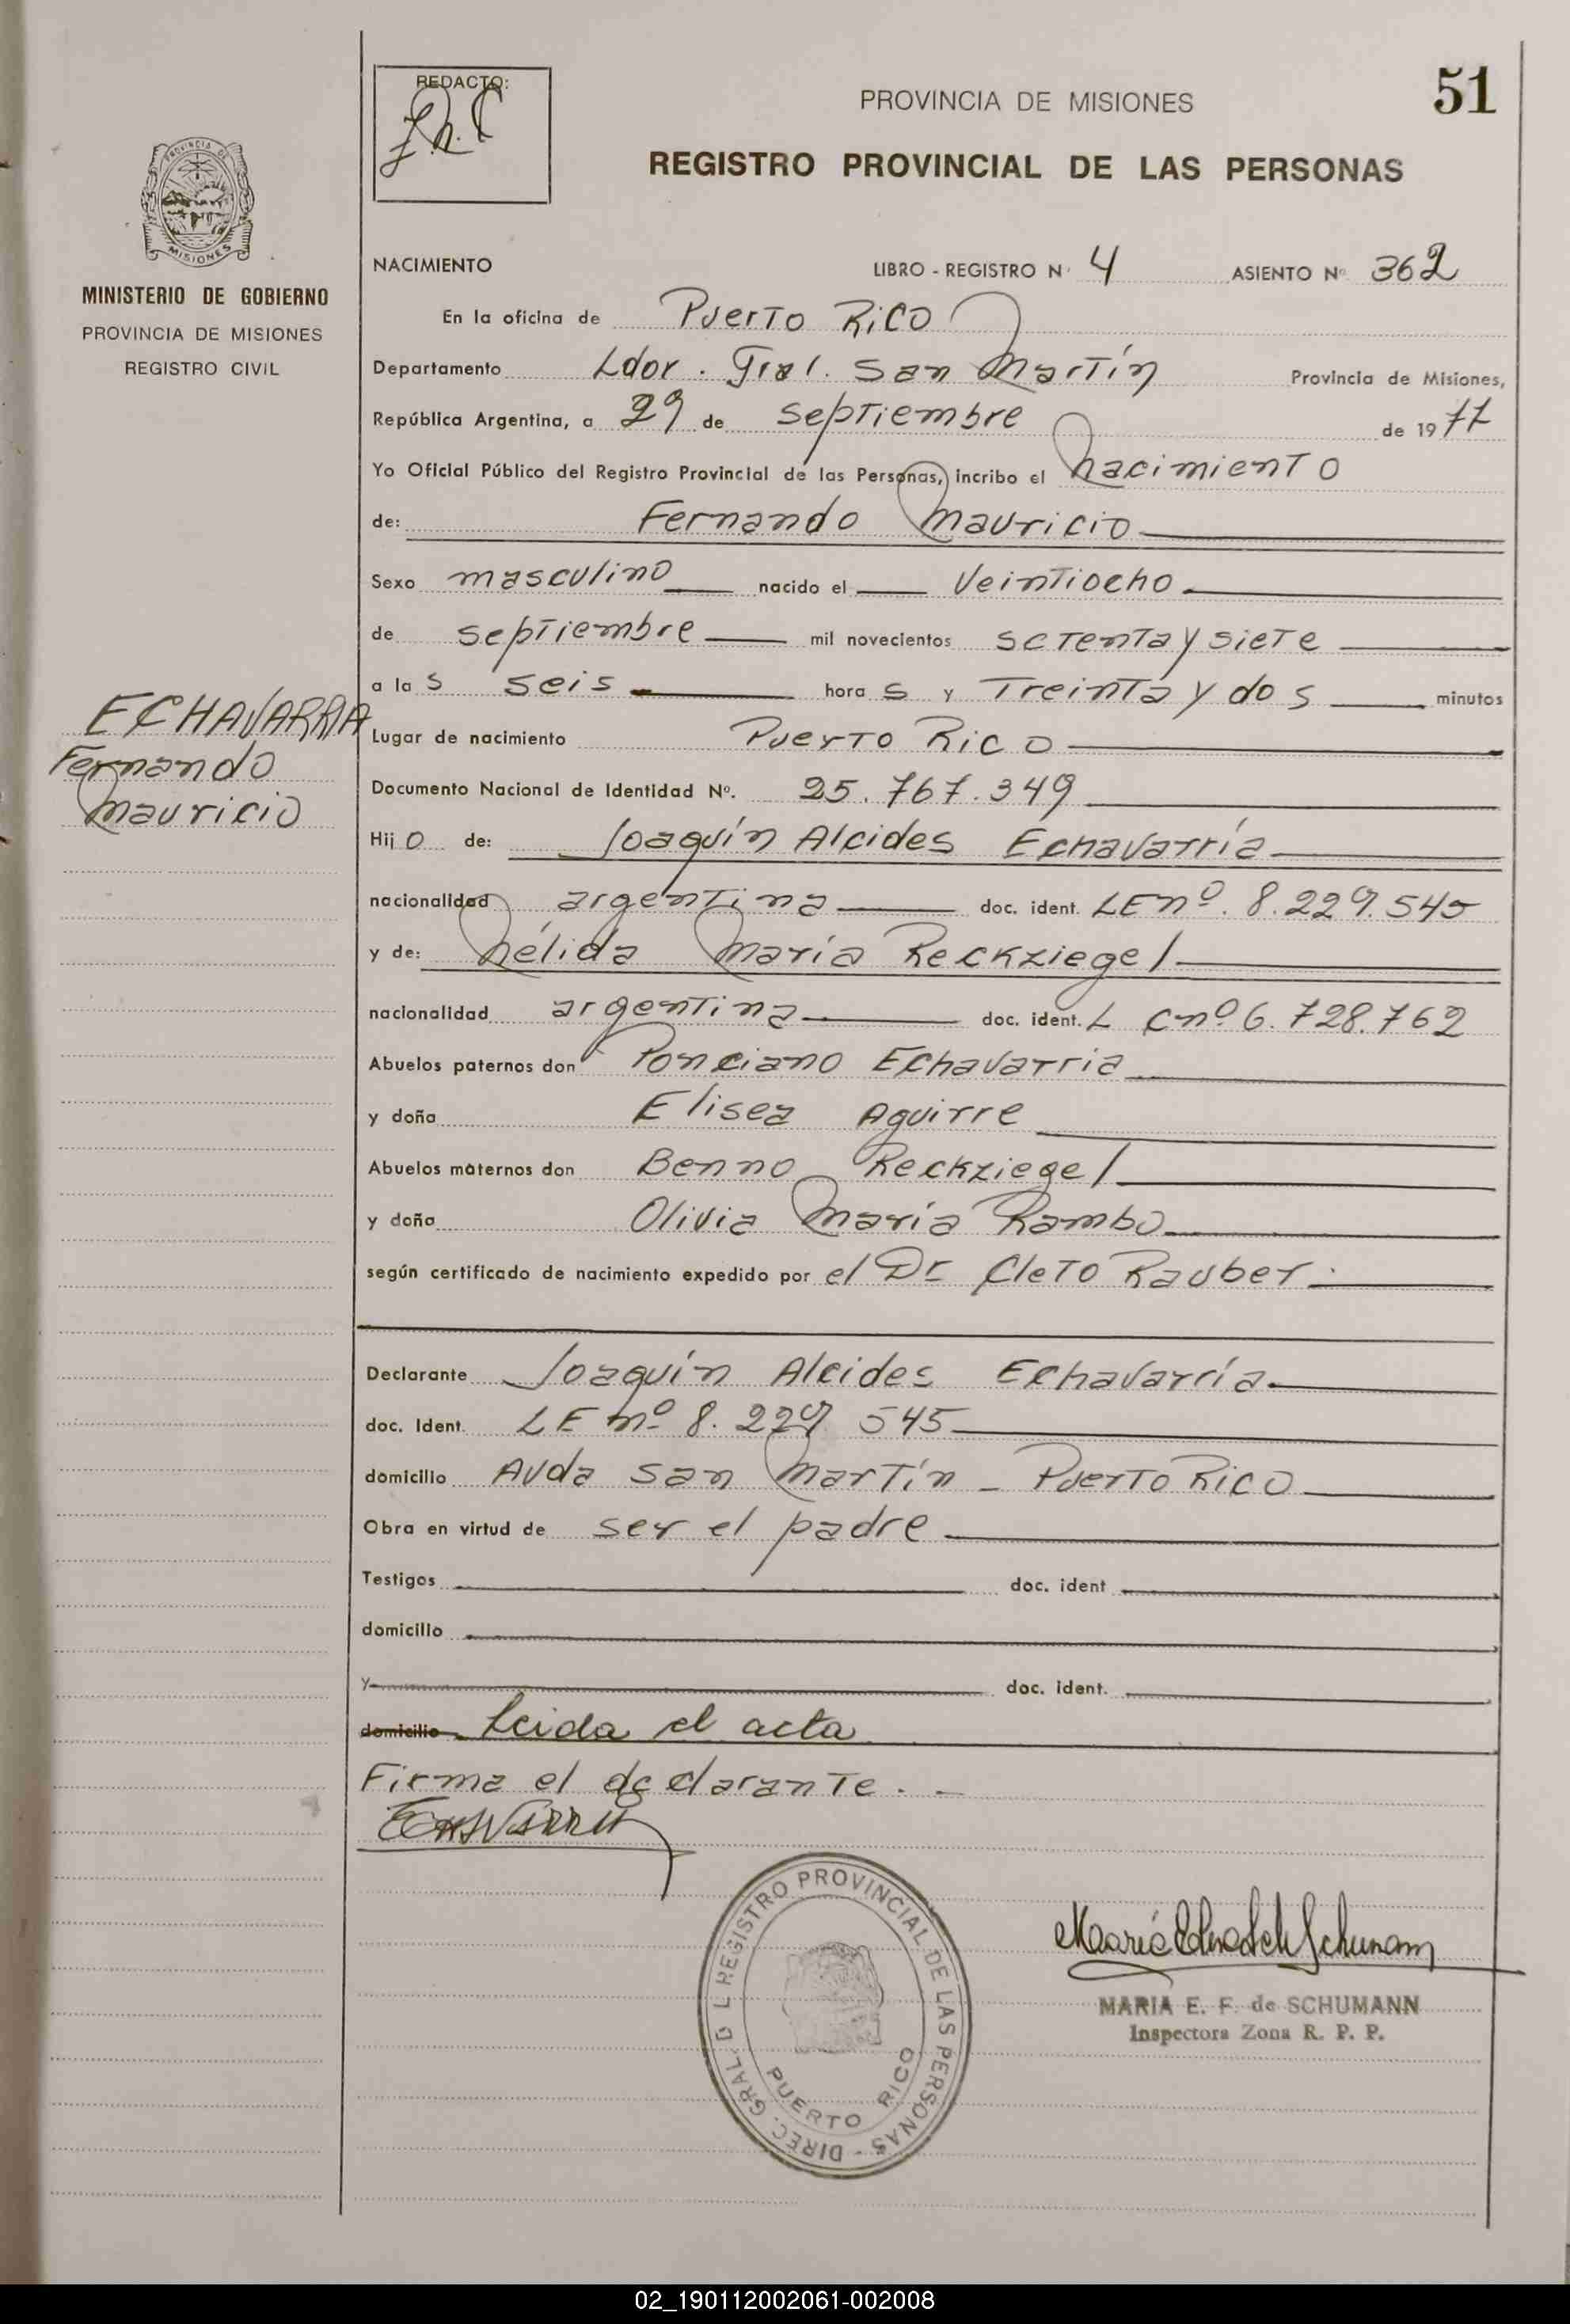 51
REDACTO:
PROVINCIA DE MISIONES
REGISTRO PROVINCIAL DE LAS PERSONAS
PROVINCIA DE
MISIONES
MINISTERIO DE GOBIERNO
PROVINCIA DE MISIONES
REGISTRO CIVIL
NACIMIENTO LIBRO - REGISTRO N° 4 ASIENTO N° 362
En la oficina de Puerto Rico
Departamento Ldor. Gral. San Martín Provincia de Misiones,
República Argentina, a 29 de septiembre de 1977
Yo Oficial Público del Registro Provincial de las Personas, incribo el nacimiento
de: Fernando Mauricio
Sexo masculino nacido el Veintiocho
de septiembre mil novecientos setenta y siete
a las seis horas y treinta y dos minutos
ECHAVARRA
Fernando
Mauricio
Lugar de nacimiento Puerto Rico
Documento Nacional de Identidad Nº. 25.767.349
Hijo de: Joaquín Alcides Echavarría
nacionalidad argentina doc. ident. LE nº. 8.229.545
y de: Nélida María Reckziegel
nacionalidad argentina doc. ident. L C nº 6.728.762
Abuelos paternos don Ponciano Echavarria
y doña Elisea Aguirre
Abuelos maternos don Benno Reckziegel
y doña Olivia María Rambo
según certificado de nacimiento expedido por el Dr Cleto Rauber.
Declarante Joaquín Alcides Echavarría
doc. Ident. LE nº 8.229 545
domicilio Avda San Martín - Puerto Rico
Obra en virtud de ser el padre
Testigos doc. ident
domicilio
y doc. ident.
domicilio Leida el acta
Firma el declarante. -
DIREC. GRAL. D L REGISTRO PROVINCIAL DE LAS PERSONAS -
PUERTO RICO
MARIA E. F. de SCHUMANN
Inspectora Zona R. P. P.
02_190112002061-002008